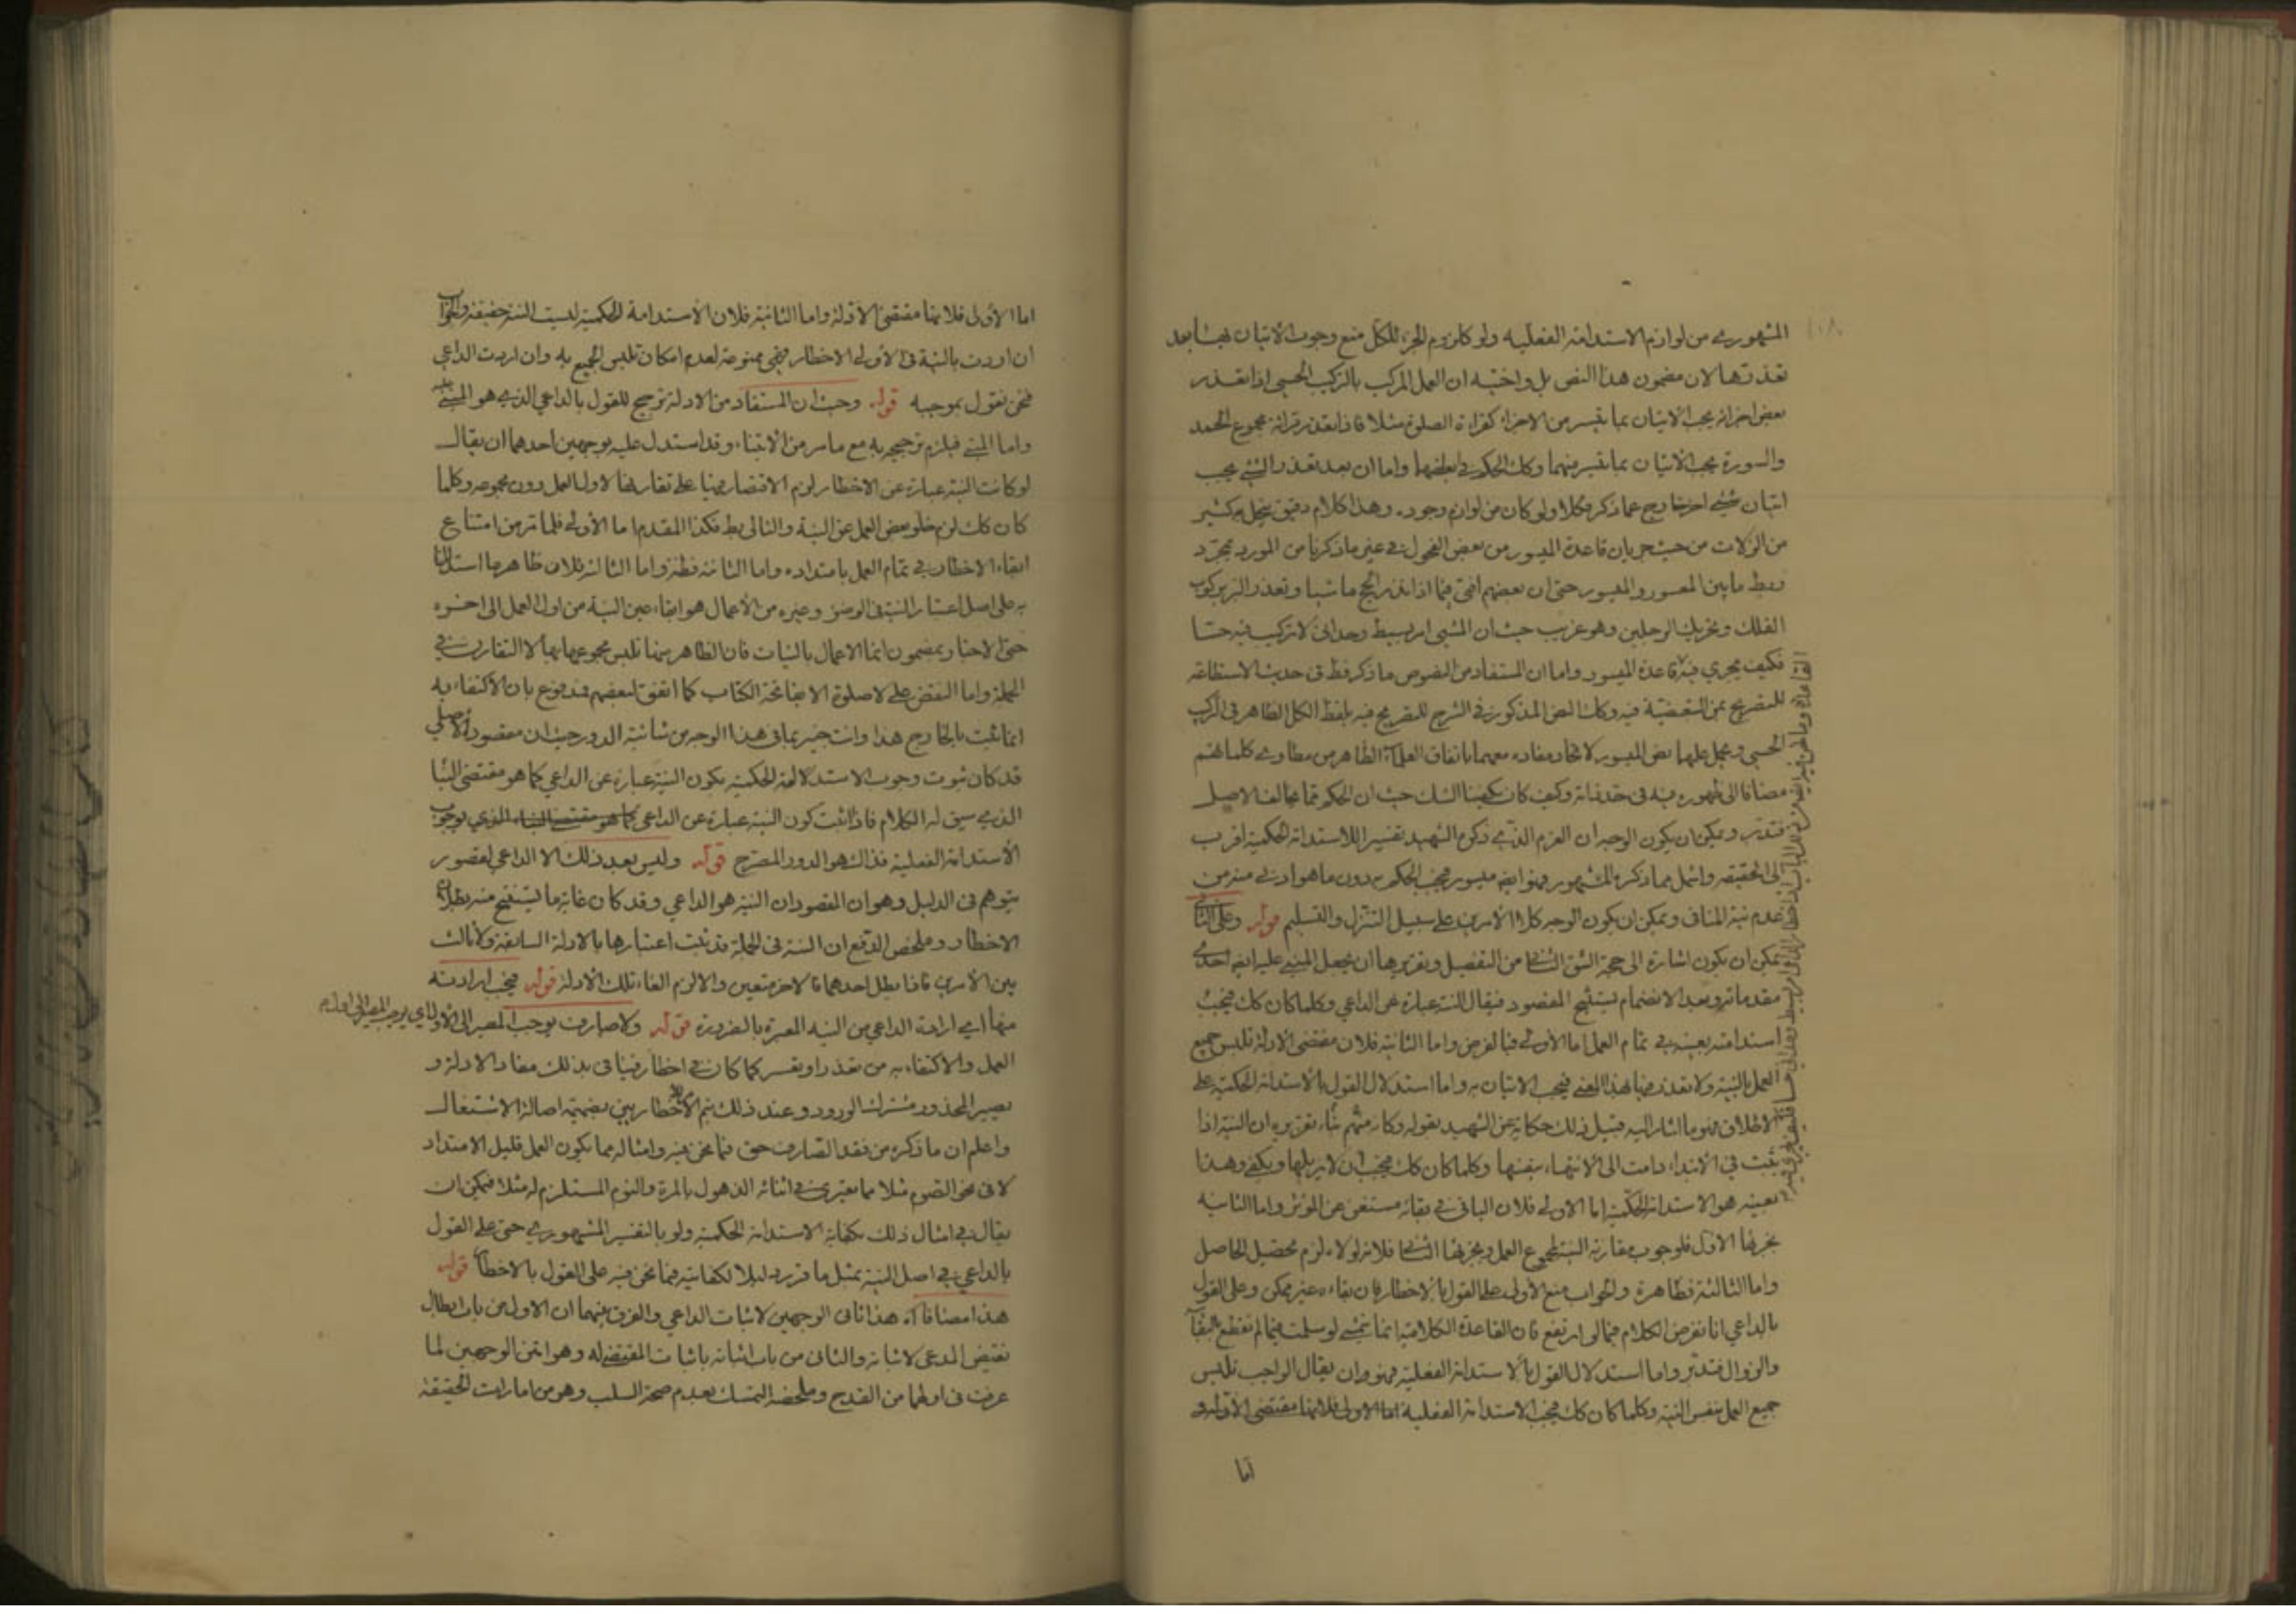 المشهوري من لوازم الاستدامة الفعلية ولو كلزوم الجزء للكل منع وجوب الاتيان بهما بعد
تعذرها لان مضمون هذا النص بل واخته ان العمل المركب بالتركيب الحسي اذا تعذر
بعض اجزائه يجب الاتيان بما تيسر من الاجزاء كقراءة الصلوة مثلا فاذا تعذر قرائة مجموع الحمد
والسورة يجب الاتيان بما تيسر منهما وكك الحكم في ابعاضهما واما ان بعد تعذر الشئ يجب
اتيان شئ اخر خارج عما ذكر فكلا ولو كان من لوازم وجوده وهذا كلام دقيق ينحل به كثير
من الزلات من حيث جريان قاعدة الميسور من بعض الفحول في غير ما ذكرنا من المورد بمجرد
ربط ما بين المعسور والميسور حتى ان بعضهم افتى فيما اذا نذر الحج ماشيا وتعذر البر بركوب
الفلك وتحريك الرجلين وهو غريب حيث ان المشي امر بسيط وحداني لا تركيب فيه حسا
فكيف يجري فيه قاعدة الميسور واما ان المستفاد من النصوص ما ذكر فقط في حديث الاستطاعة
للتصريح بمن التبعيضية فيه وكك النص المذكور في الشرح للتصريح فيه بلفظ الكل الظاهر في المركب
الحسي ويحمل عليهما نص الميسور لاتحاد مفاده معهما باتفاق العلماء الظاهر من مطاوي كلماتهم
مضافا الى ظهوره فيه في حد ذاته وكيف كان يكفينا الشك حيث ان الحكم مما يخالف الاصل
فتدبر ويمكن ان يكون الوجه ان العزم الذي ذكره الشهيد تفسيرا للاستدامة الحكمية اقرب
الى الحقيقة واشمل مما ذكره المشهور فهو ايضا ميسور فيجب الحكم به دون ما هو ادنى منه من
عدم نية المنافي ويمكن ان يكون الوجه كلا الامرين على سبيل التنزل والتسليم قوله وعلى الثاني
يمكن ان يكون اشارة الى حجة الشق الثاني من التفصيل وتقريرها ان يجعل المبني عليه ايضا احدى
مقدماته وبعد الانضمام يستنتج المقصود فيقال النية عبارة عن الداعي وكلما كان كك فيجب
استدامته بعينه في تمام العمل اما الاولى فبالفرض واما الثانية فلان مقتضى الادلة تلبس جميع
العمل بالنية ولا تعذر فيها بهذا المعنى فيجب الاتيان به واما استدلال القول بالاستدامة الحكمية على
الاطلاق فهو ما اشار اليه قبيل ذلك حكاية عن الشهيد بقوله وكان منهم بناء تقريره ان النية اذا
ثبتت في الابتداء دامت الى الانتهاء بنفسها وكلما كان كك فيجب ان لا يزيلها ويكفي وهذا
بعينه هو الاستدامة الحكمية اما الاولى فلان الباقي في بقائه مستغن عن المؤثر واما الثانية
بجزئها الاول فلوجوب مقارنة النية لمجموع العمل وبجزئها الثاني فلانه لولاه لزم تحصيل الحاصل
واما الثالثة فظاهرة والجواب منع الاولى على القول بالاخطار فان بقاءه غير ممكن وعلى القول
بالداعي انا نفرض الكلام فيما لو ارتفع فان القاعدة الكلامية انما تتمشى لو سلمت فيما لم نقطع بالبقاء
والزوال فتدبر واما استدلال القول بالاستدامة الفعلية فهو وان يقال الواجب تلبس
جميع العمل بنفس النية وكلما كان كك فيجب الاستدامة الفعلية اما الاولى فلانها مقتضى الادلة و
اما
اما الأولى فلانها مقتضى الادلة واما الثانية فلان الاستدامة الحكمية ليست النية حقيقة والجواب
ان اردت بالنية في الاولى الاخطار فهي ممنوعة لعدم امكان تلبس الجميع به وان اردت الداعي
فنحن نقول بموجبه قوله وحيث ان المستفاد من الادلة ترجيح للقول بالداعي الذي هو المبني عليه
واما المبني فيلزم ترجيحه به مع ما مر من الابتناء وقد استدل عليه بوجهين احدهما ان يقال
لو كانت النية عبارة عن الاخطار لزم الاقتصار فيها على تقارنها لاول العمل دون مجموعه وكلما
كان كك لزم خلو بعض العمل عن النية والتالي بط فكذا المقدم اما الأولى فلما مر من امتناع
ابقاء الاخطار في تمام العمل بامتداده واما الثانية فظة واما الثالثة فلان ظاهر ما استدلوا
به على اصل اعتبار النية في الوضوء وغيره من الأعمال هو ابقاء عين النية من اول العمل الى اخره
حتى الاخبار بمضمون انما الاعمال بالنيات فان الظاهر منها تلبس مجموعها بها لا التقارن في
الجملة واما النقض على لا صلوة الا بفاتحة الكتاب كما اتفق لبعضهم فمدفوع بان الاكتفاء به
انما ثبت بالخارج هذا وانت خبير بما في هذا الوجه من شائبة الدور حيث ان مقصوده الأصلي
قد كان ثبوت وجوب الاستدامة الحكمية بكون النية عبارة عن الداعي كما هو مقتضى البناء
الذي سيق له الكلام فاذا اثبت كون النية عبارة عن الداعي كما هو مقتضى البناء الذي بوجوب
الاستدامة الفعلية فذاك هو الدور المصرح قوله وليس بعد ذلك الا الداعي لقصور
يتوهم في الدليل وهو ان المقصود ان النية هو الداعي وقد كان غاية ما يستنتج منه بطلان
الاخطار وملخص الدفع ان النية في الجملة قد ثبت اعتبارها بالادلة السابقة ولا ثالث
بين الأمرين فاذا بطل احدهما فالاخر متعين والا لزم الغاء تلك الادلة قوله فيجب ارادته
منها اي ارادة الداعي من النية المعتبرة بالضرورة قوله ولا صارف يوجب المصير الى الاول اي يوجب المصير الى اول
العمل والاكتفاء به من تعذر او تعسر كما كان في اخطار فينافي بذلك مفاد الادلة و
يصير المحذور مشترك الورود وعند ذلك يتم الاخطاريين بضميمة اصالة الاشتغال
واعلم ان ما ذكره من فقد الصارف حق فيما نحن فيه وامثاله مما يكون العمل قليل الامتداد
لا في نحو الصوم مثلا مما يعتري في اثنائه الذهول بالمرة والنوم المستلزم له مثلا فيمكن ان
يقال في امثال ذلك بكفاية الاستدامة الحكمية ولو بالتفسير المشهوري حتى على القول
بالداعي في اصل النية بمثل ما قرر دليلا لكفايته فيما نحن فيه على القول بالاخطار قوله
هذا مضافا آه هذا ثاني الوجهين لاثبات الداعي والفرق بينهما ان الاول من باب ابطال
نقيض المدعى لاثباته والثاني من باب اثباته باثبات المقتضي له وهو امتن الوجهين لما
عرفت في اولهما من القدح وملخصه التمسك بعدم صحة السلب وهو من امارات الحقيقة